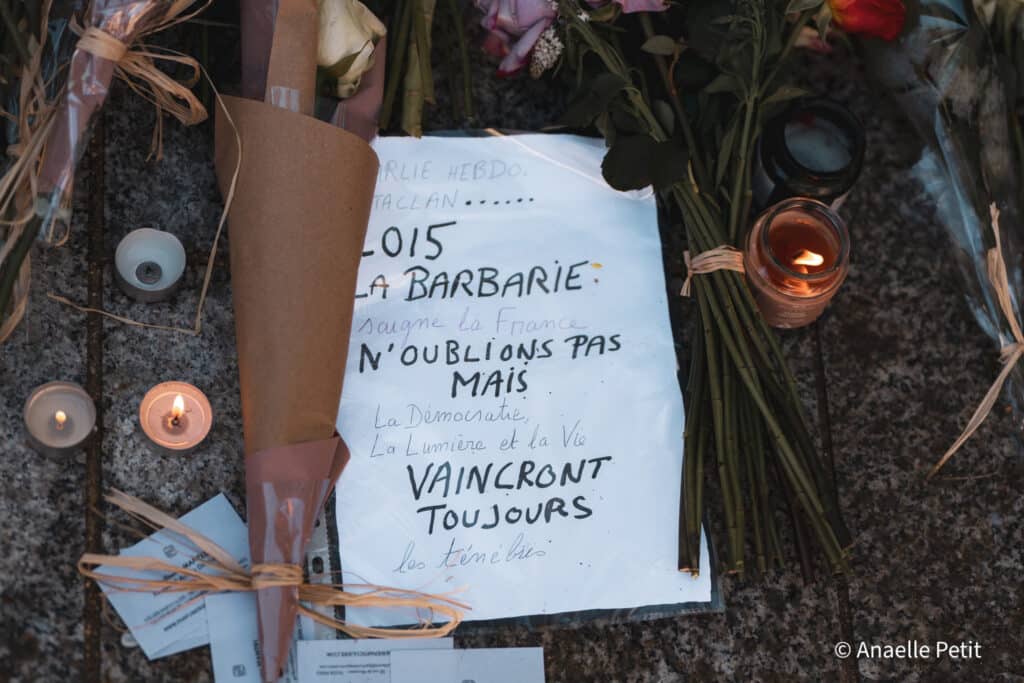 RLIE HEBDO.
TACLAN ......
2015
LA BARBARIE:
saigne la France
N'OUBLIONS PAS
MAIS
La Démocratie,
La Lumière et la Vie
VAINCRONT
TOUJOURS
les ténèbres
© Anaelle Petit